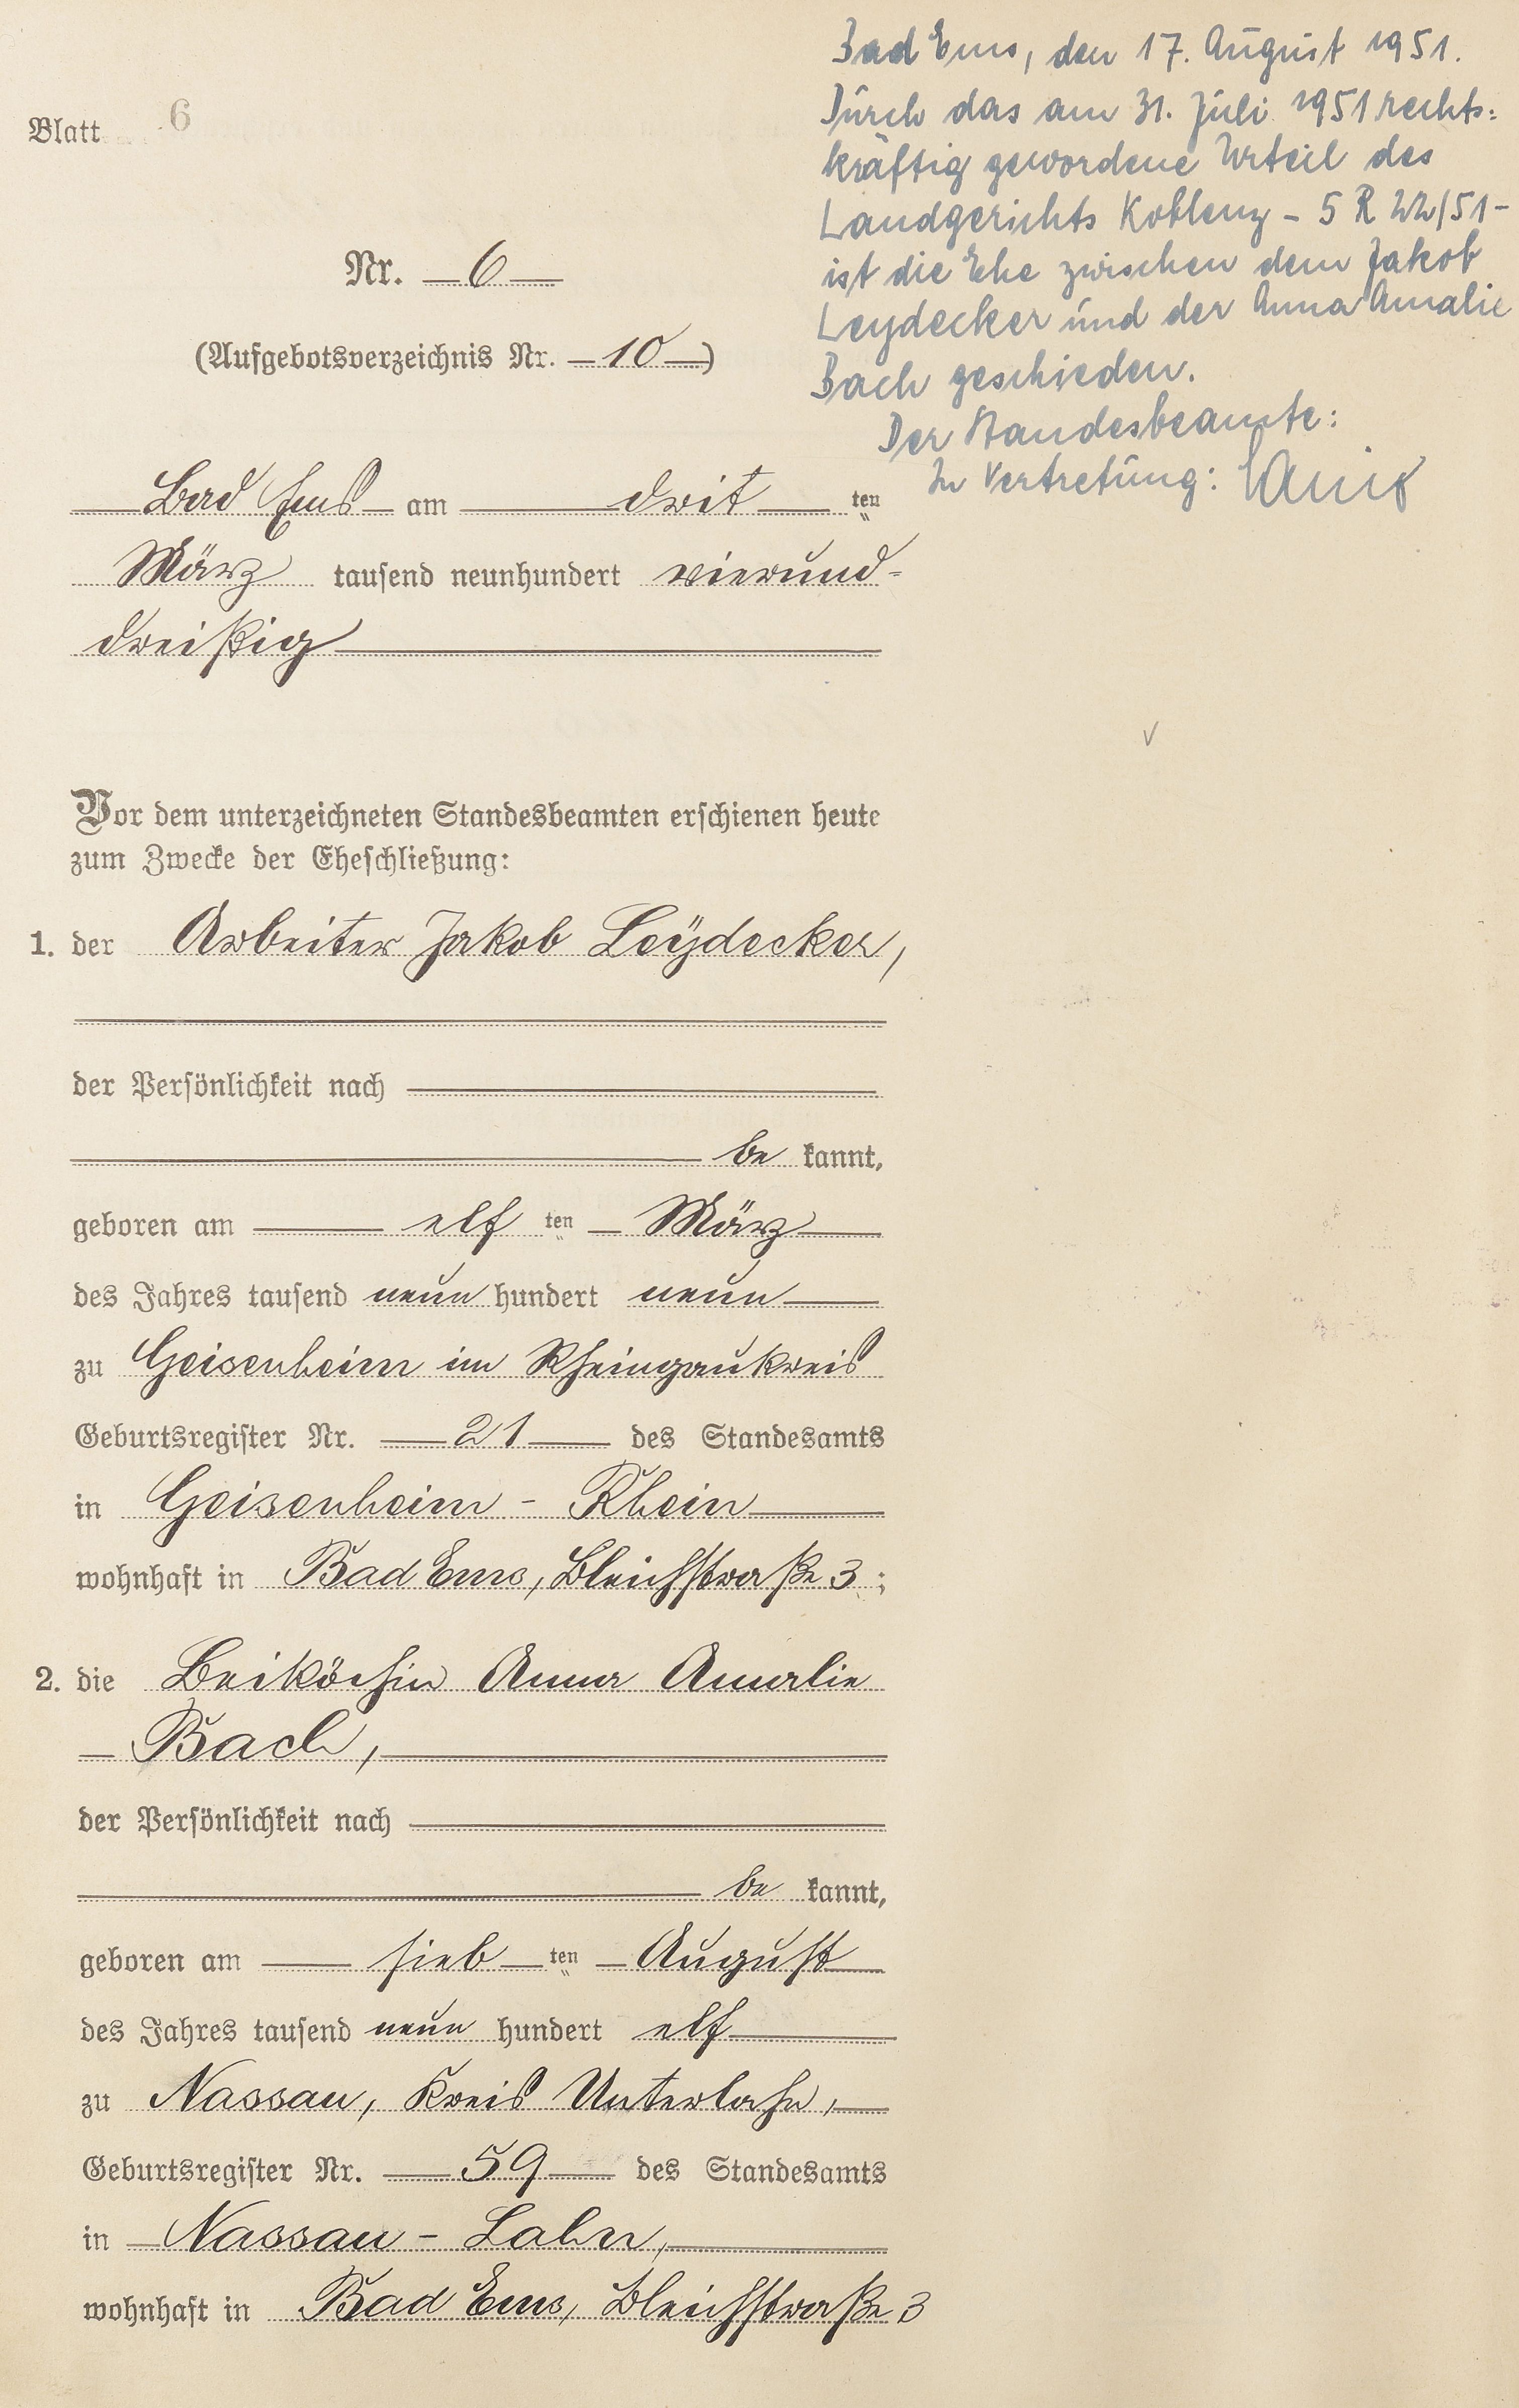 Blatt 6
Nr. 6
(Aufgebotsverzeichnis Nr. 10)
Bad Ems am drit ten
März tausend neunhundert vierund-
dreißig
Bad Ems, den 17. August 1951.
Durch das am 31. Juli 1951 rechts:
kräftig gewordene Urteil des
Landgerichts Koblenz – 5 R 22/51 –
ist die Ehe zwischen dem Jakob
Leydecker und der Anna Amalie
Bach geschieden.
Der Standesbeamte:
In Vertretung:
Vor dem unterzeichneten Standesbeamten erschienen heute
zum Zwecke der Eheschließung:
1. der Arbeiter Jakob Leÿdecker,
der Persönlichkeit nach
be kannt,
geboren am elf ten März
des Jahres tausend neun hundert neun
zu Geisenheim im Rheingaukreis
Geburtsregister Nr. 21 des Standesamts
in Geisenheim - Rhein
wohnhaft in Bad Ems, Bleichstraße 3;
2. die Beiköchin Anna Amalie
Bach,
der Persönlichkeit nach
be kannt,
geboren am sieb ten August
des Jahres tausend neun hundert elf
zu Nassau, Kreis Unterlahn,
Geburtsregister Nr. 59 des Standesamts
in Nassau - Lahn,
wohnhaft in Bad Ems, Bleichstraße 3